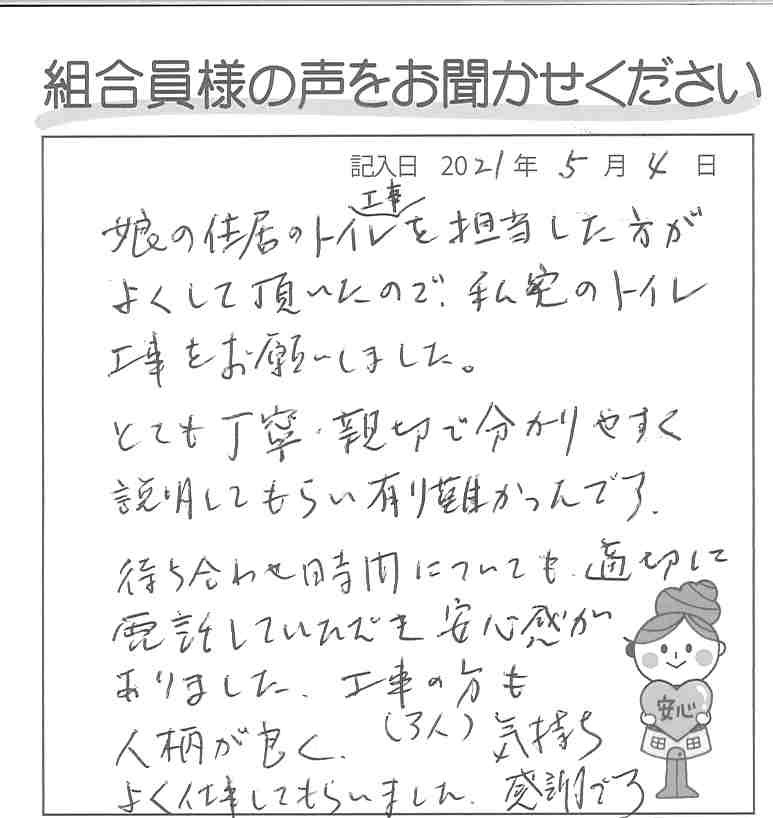 組合員様の声をお聞かせください
記入日 2021年 5月 4日
工事
娘の住居のトイレを担当した方が
よくして頂いたので、私宅のトイレ
工事をお願いしました。
とても丁寧・親切で分かりやすく
説明してもらい有り難かったんです。
待ち合わせ時間についても、適切に
電話していただき安心感が
ありました、工事の方も
人柄が良く、(3人)気持ち
よく仕事してもらいました、感謝です
安心